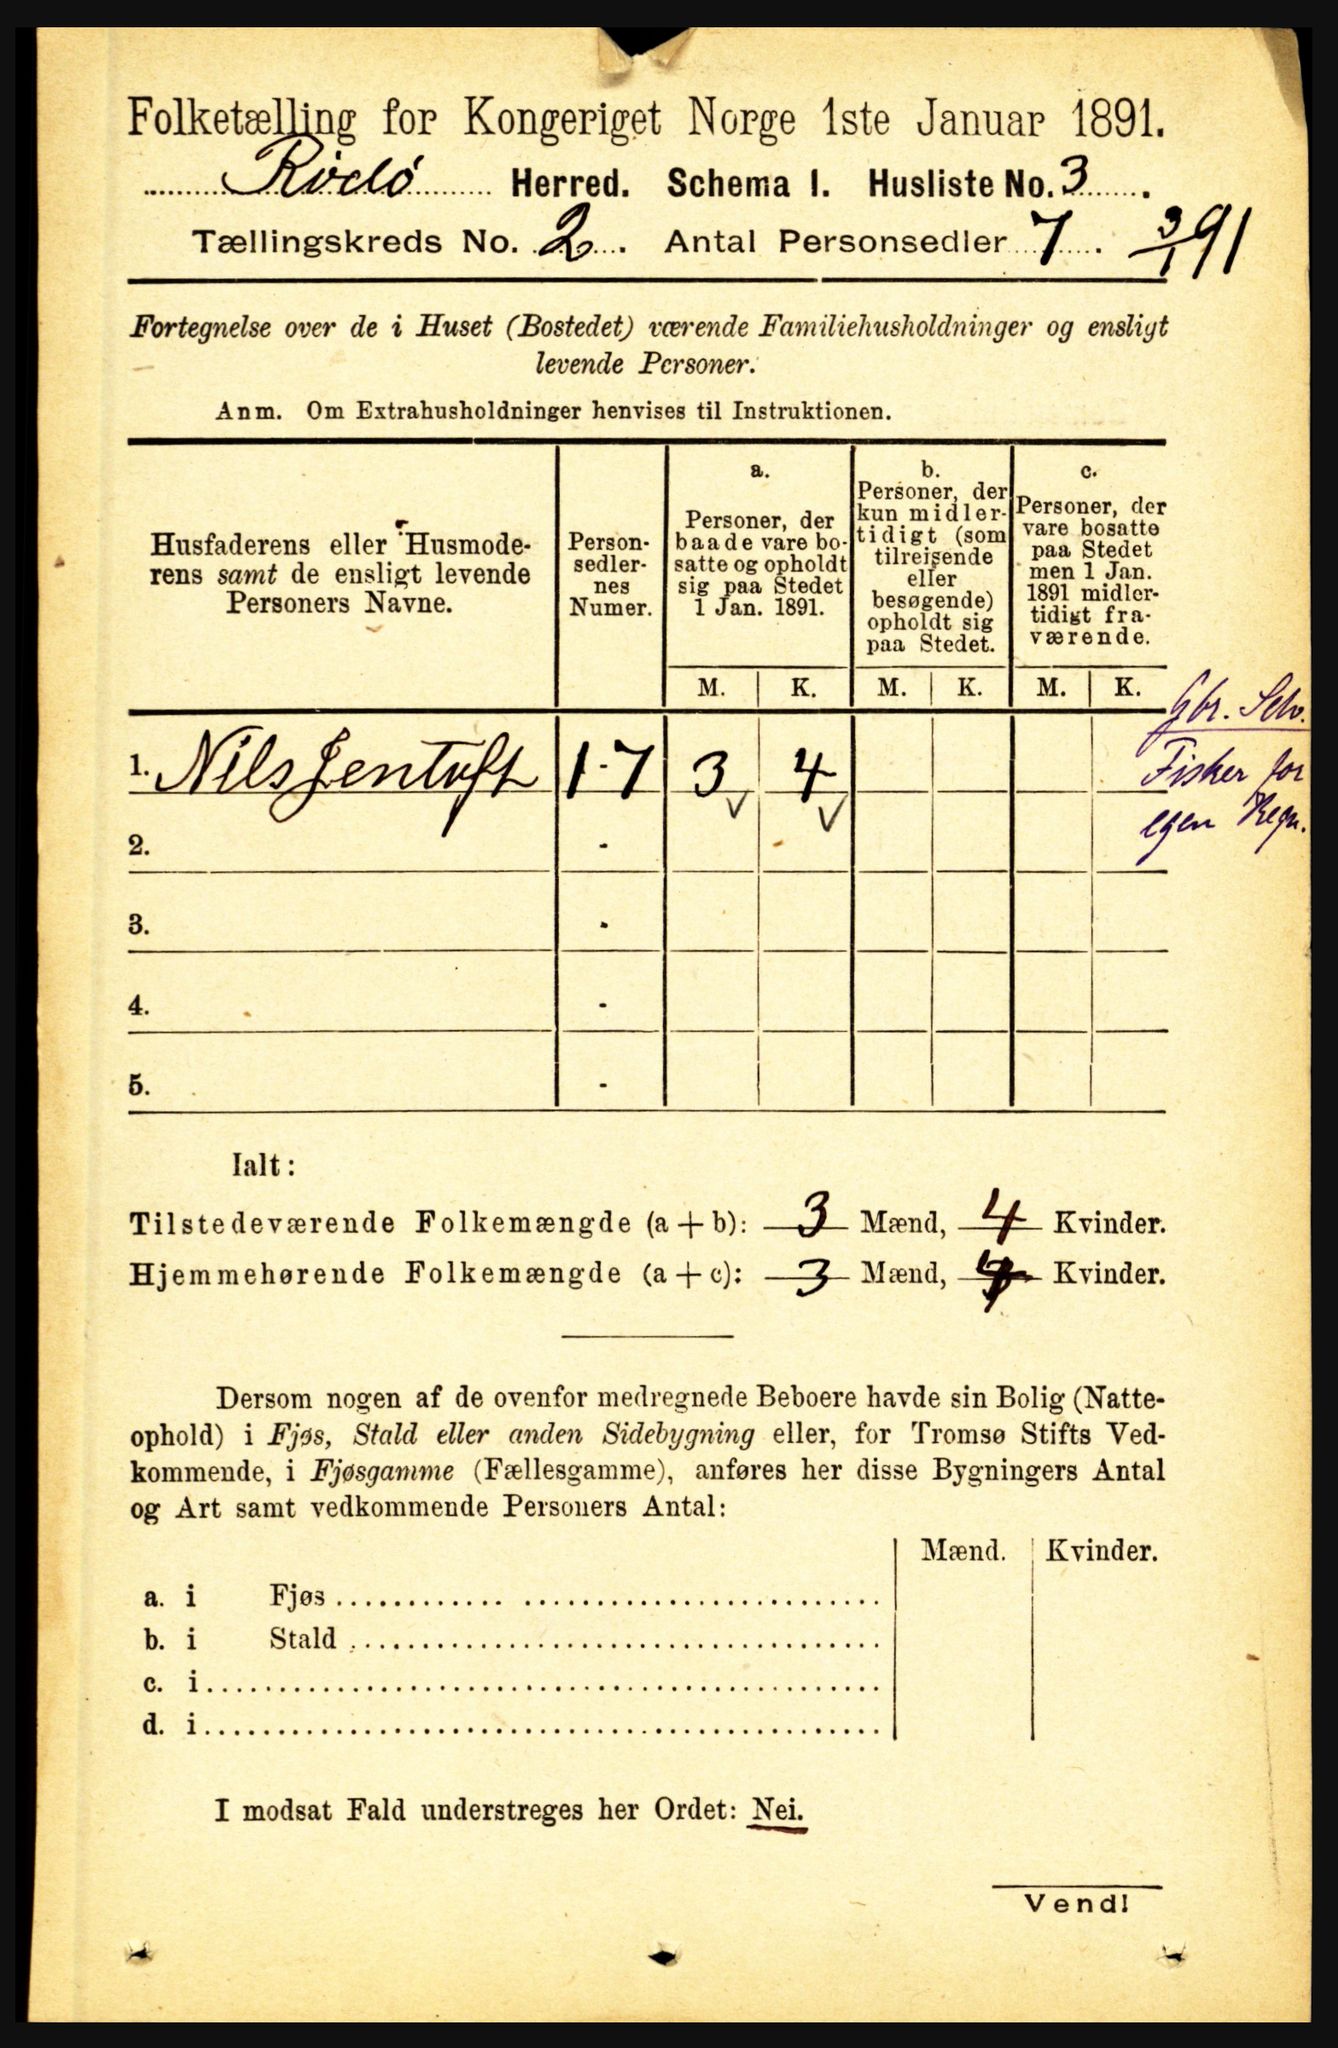 Folketælling for Kongeriget Norge 1ste Januar 1891.
Rödö Herred. Schema I. Husliste No. 3.
Tællingskreds No. 2. Antal Personsedler 7. 3/1 91
Fortegnelse over de i Huset (Bostedet) værende Familiehusholdninger og ensligt
levende Personer.
Anm. Om Extrahusholdninger henvises til Instruktionen.
Husfaderens eller Husmode-
rens samt de ensligt levende
Personers Navne.
Person-
sedler-
nes
Numer.
a.
Personer, der
baade vare bo-
satte og opholdt
sig paa Stedet
1 Jan. 1891.
b.
Personer, der
kun midler-
tidigt (som
tilreisende
eller
besøgende)
opholdt sig
paa Stedet.
c.
Personer, der
vare bosatte
paa Stedet
men 1 Jan.
1891 midler-
tidigt fra-
værende.
M. K. M. K. M. K.
Gbr. Selv.
Fisker for
egen Regn.
1. Nils Jentoft 1-7 3 4
2. -
3. -
4. -
5. -
Ialt:
Tilstedeværende Folkemængde (a + b): 3 Mænd, 4 Kvinder.
Hjemmehørende Folkemængde (a + c): 3 Mænd, 4 Kvinder.
Dersom nogen af de ovenfor medregnede Beboere havde sin Bolig (Natte-
ophold) i Fjøs, Stald eller anden Sidebygning eller, for Tromsø Stifts Ved-
kommende, i Fjøsgamme (Fællesgamme), anføres her disse Bygningers Antal
og Art samt vedkommende Personers Antal:
Mænd. Kvinder.
a. i Fjøs
b. i Stald
c. i
d. i
I modsat Fald understreges her Ordet: Nei.
Vend!